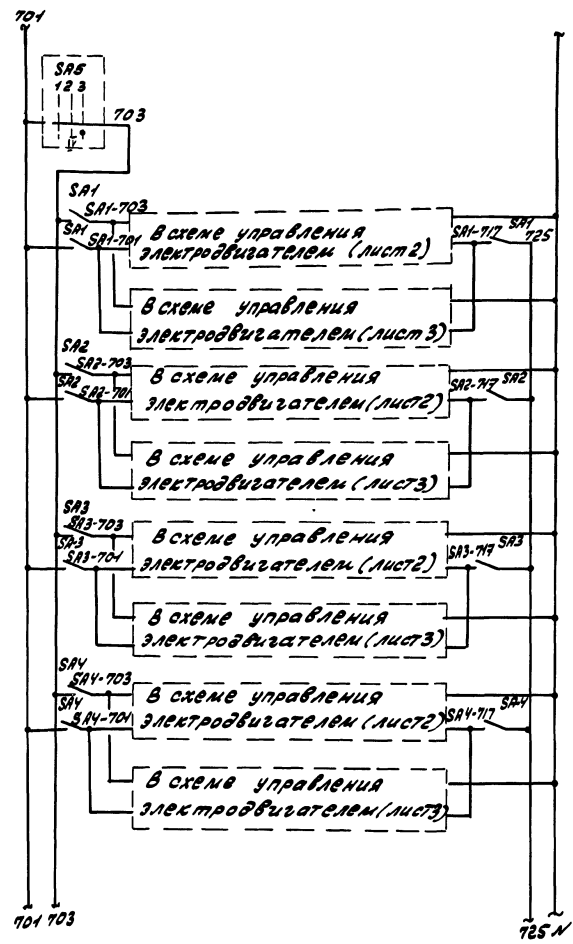 701
SA5
1 2 3
703
SA1
SA1-703
SA1 SA1-701
В схеме управления
электродвигателем (лист 2)
SA1-717 SA1
725
В схеме управления
электродвигателем (лист 3)
SA2
SA2-703
SA2 SA2-701
В схеме управления
электродвигателем (лист 2)
SA2-717 SA2
В схеме управления
электродвигателем (лист 3)
SA3
SA3-703
SA-3
SA3-701
В схеме управления
электродвигателем (лист 2)
SA3-717 SA3
В схеме управления
электродвигателем (лист 3)
SA4
SA4-703
SA4
SA4-701
В схеме управления
электродвигателем (лист 2)
SA4-717 SA4
В схеме управления
электродвигателем (лист 3)
701 703
725 N